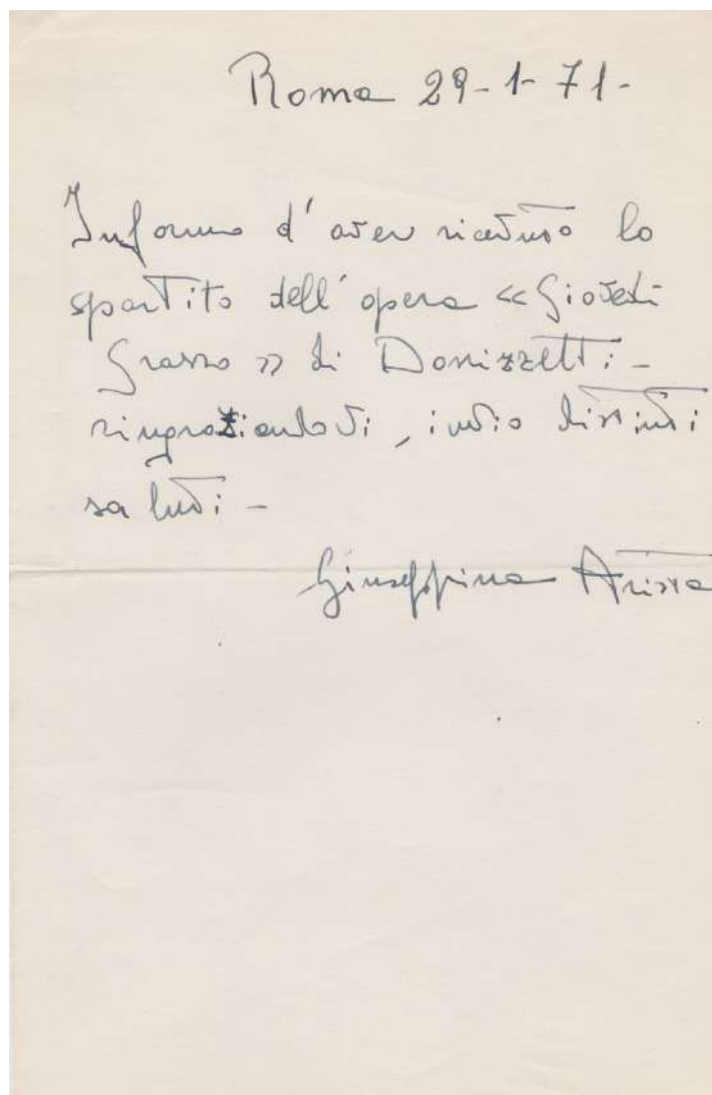 Roma 29-1-71-
Informo d'aver ricevuto lo
spartito dell'opera «Giovedì
Grasso» di Donizzetti -
ringraziandovi, invio distinti
saluti -
Giuseppina Arista